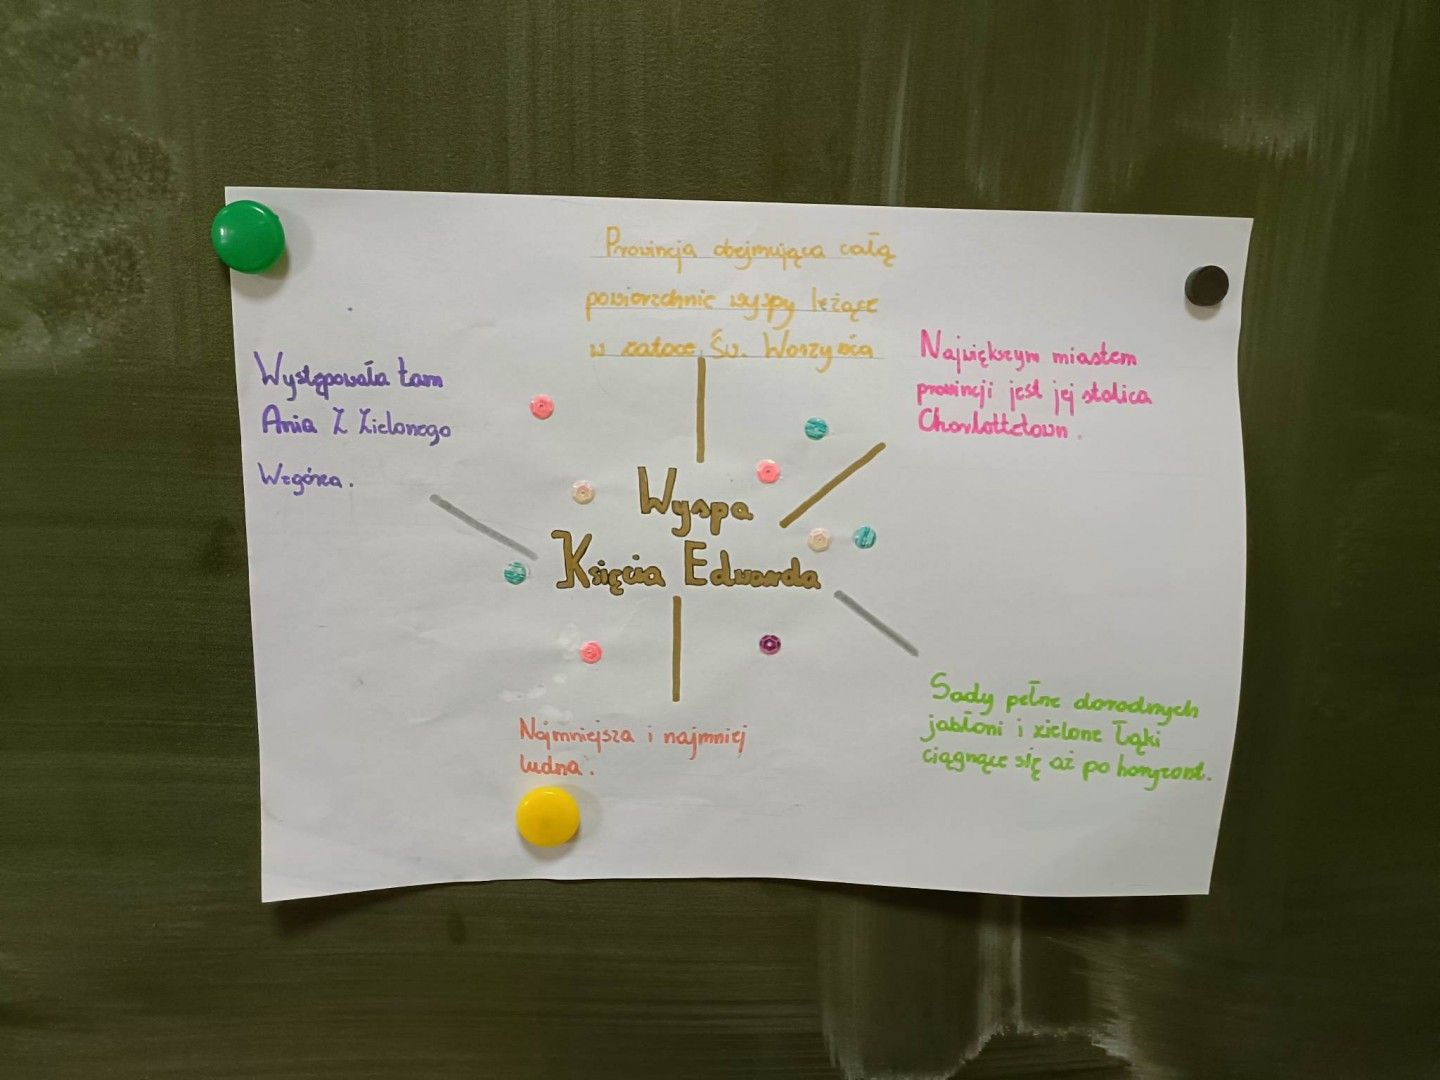 Prowincja obejmująca całą
powierzchnie wyspy leżące
w zatoce Św. Wawrzyńca
Występowała tam
Ania Z Zielonego
Wzgórza.
Największym miastem
prowincji jest jej stolica
Charlottetown.
Wyspa
Księcia Edwarda
Najmniejsza i najmniej
ludna.
Sady pełne dorodnych
jabłoni i zielone łąki
ciągnące się aż po horyzont.